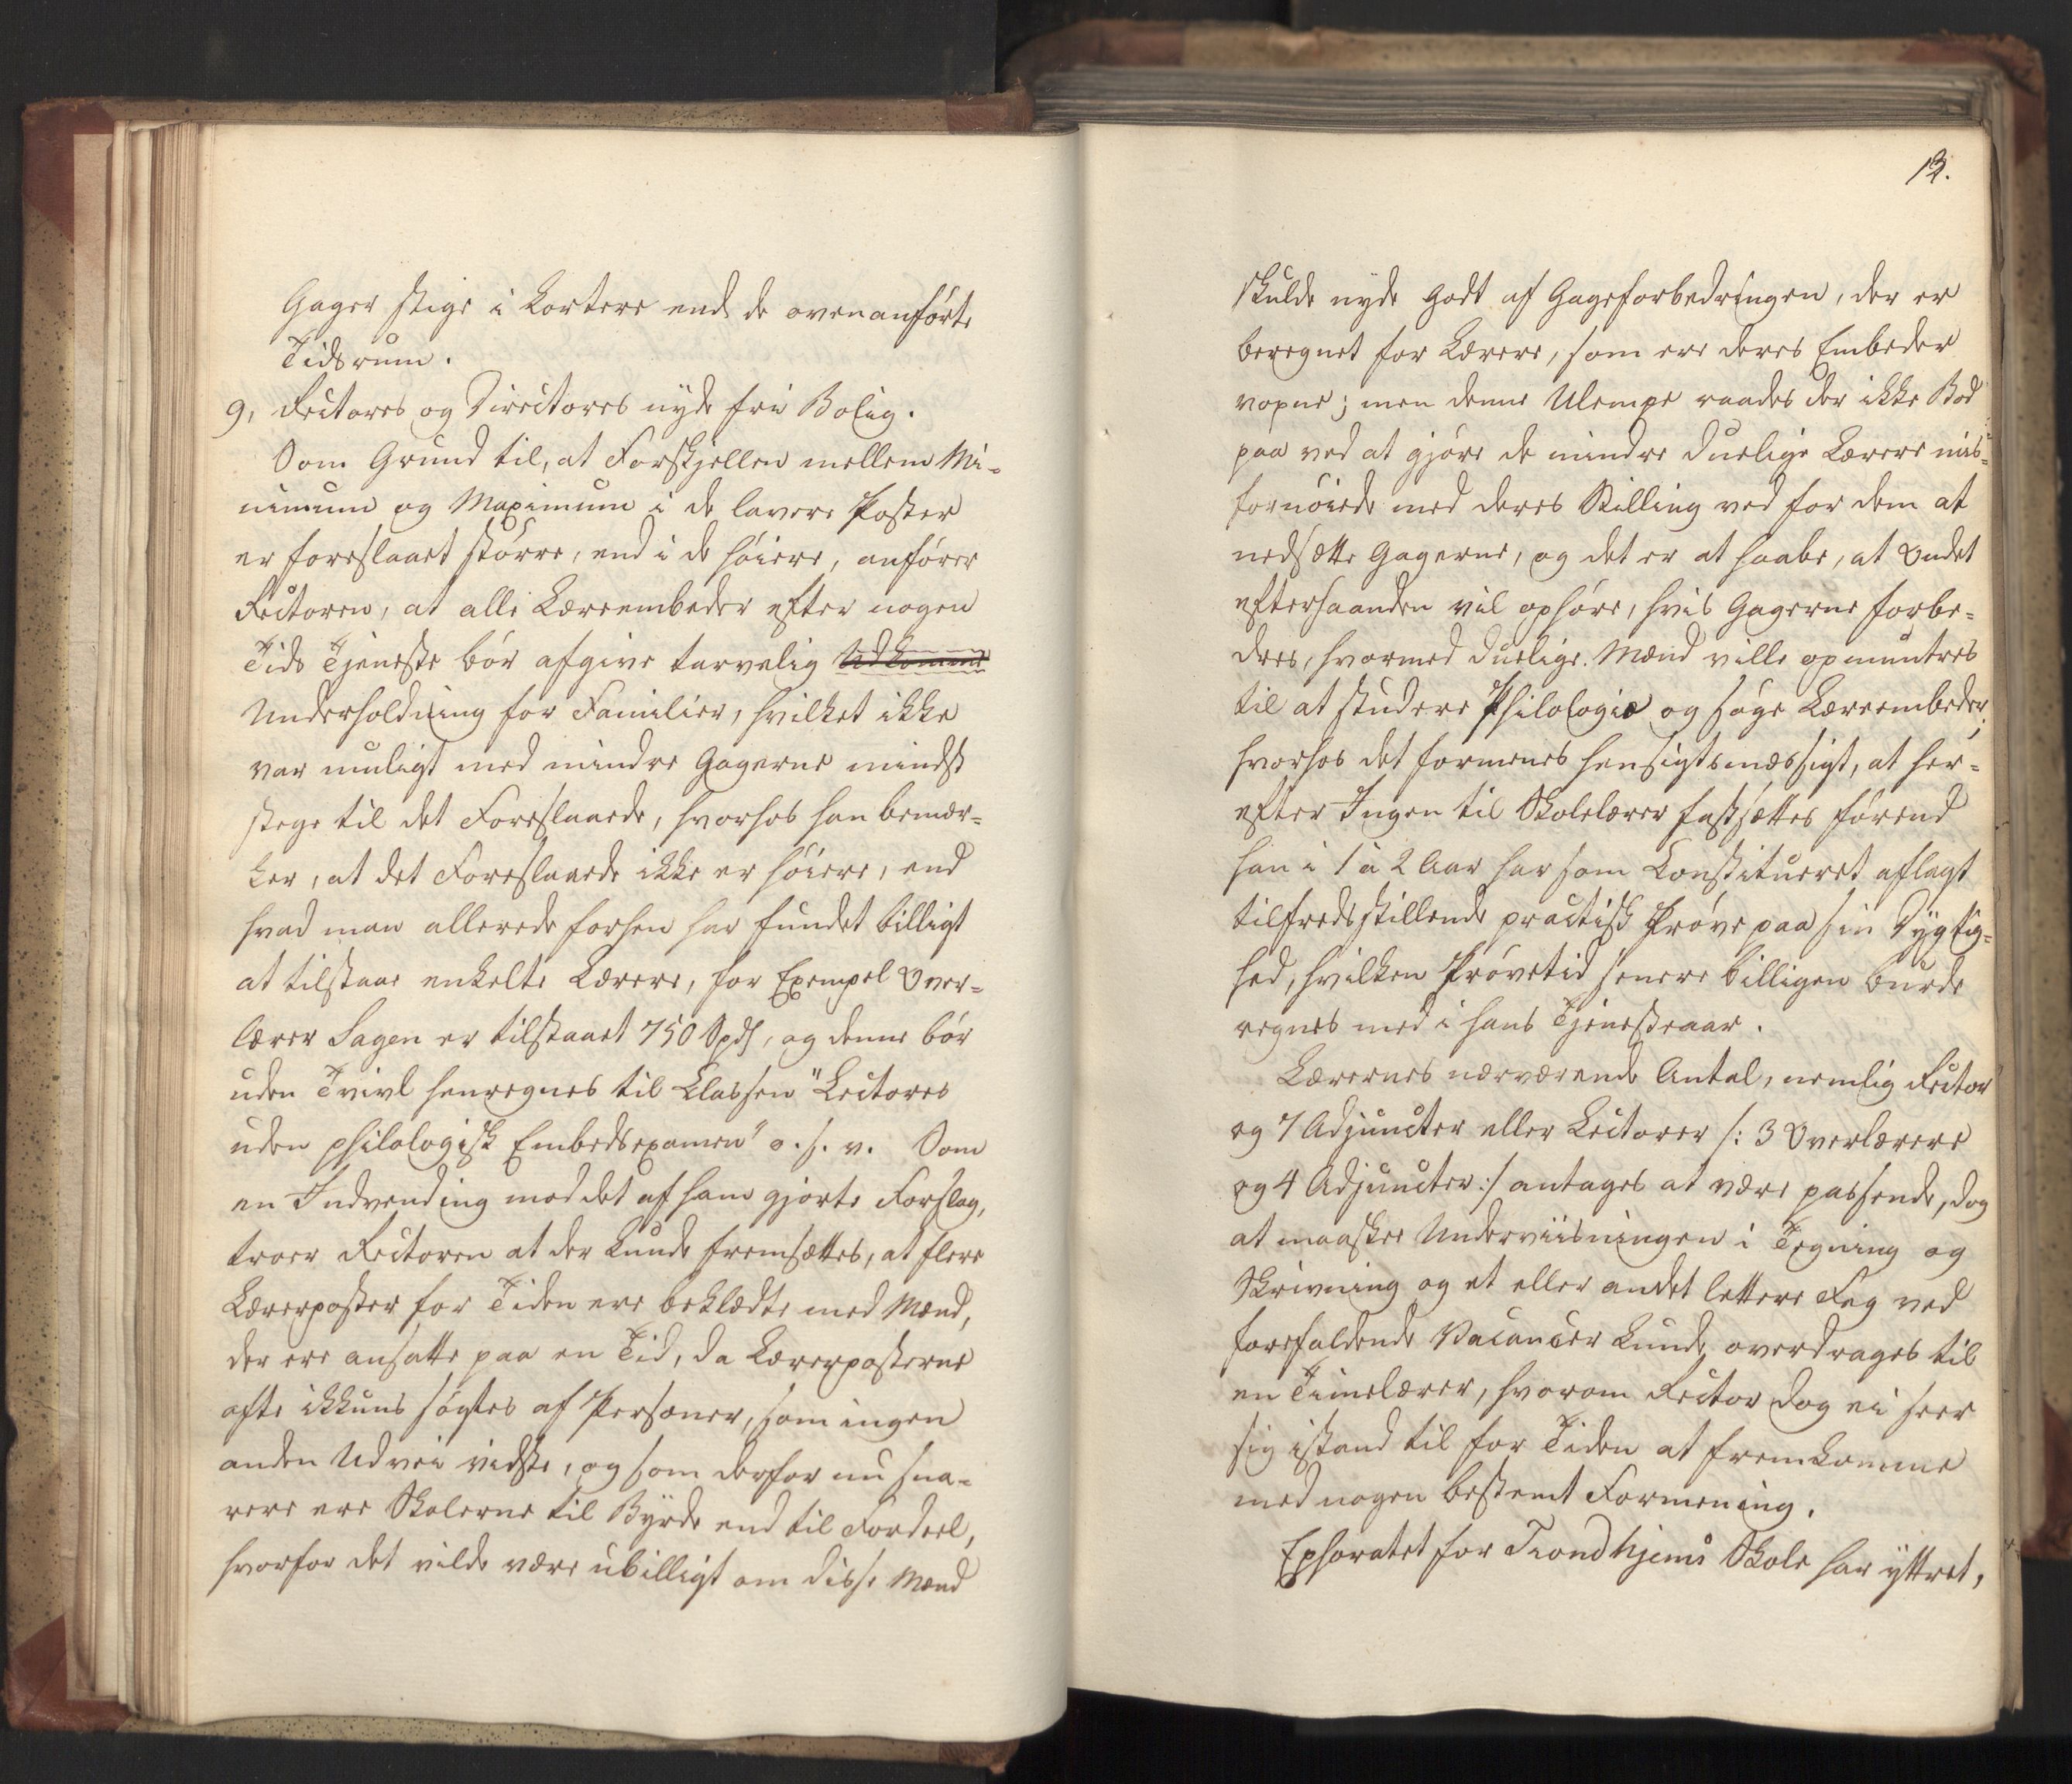 Gager stige i kortere end de ovenanførte
Tidsrum.
9, Rectores og Directores nyde fri Bolig.
Som Grund til, at Forskjellen mellem Mi-
nimum og Maximum i de lavere Poster
er foreslaaet større, end i de høiere, anfører
Rectoren, at alle Læreembeder efter nogen
Tids Tjeneste bør afgive tarvelig Udkomme
Underholdning for Familier, hvilket ikke
var muligt med mindre Gagerne mindst
stege til det Foreslaaede, hvorhos han bemær-
ker, at det Foreslaaede ikke er høiere, end
hvad man allerede forhen har fundet billigt
at tilstaae enkelte Lærere, for Exempel Over-
lærer Sagen er tilstaaet 750 Spd, og denne bør
uden Tvivl henregnes til Classen "Lectores
uden philologisk Embedsexamen" o. s. v. Som
en Indvending mod det af ham gjorte Forslag,
troer Rectoren at der kunde fremsættes, at flere
Lærerposter for Tiden ere beklædte med Mænd,
der ere ansatte paa en Tid, da Lærerposterne
ofte ikkuns søgtes af Personer, som ingen
anden Udvei vidste, og som derfor nu sna-
rere ere Skolerne til Byrde end til Fordeel,
hvorfor det vilde være ubilligt om disse Mænd
12.
skulde nyde godt af Gageforbedringen, der er
beregnet for Lærere, som ere deres Embeder
voxne; men denne Ulempe raades der ikke Bod
paa ved at gjøre de mindre duelige Lærere mis-
fornøiede med deres Stilling ved for dem at
nedsætte Gagerne, og det er at haabe, at Ondet
efterhaanden vil ophøre, hvis Gagerne forbe-
dres, hvormed duelige Mænd ville opmuntres
til at studere Philologie og søge Læreembeder,
hvorhos det formenes hensigtsmæssigt, at her-
efter Ingen til Skolelærer fastsættes førend
han i 1 à 2 Aar har som Constitueret aflagt
tilfredsstillende practisk Prøve paa sin Dygtig-
hed, hvilken Prøvetid senere billigen burde
regnes med i hans Tjenesteaar.
Lærernes nærværende Antal, nemlig Rector
og 7 Adjuncter eller Lectorer /: 3 Overlærere
og 4 Adjuncter :/ antages at være passende, dog
at maaskee Underviisningen i Tegning og
Skrivning og et eller andet lettere Fag ved
forefaldende Vacancer kunde overdrages til
en Timelærer, hvorom Rector dog ei seer
sig istand til for Tiden at fremkomme
med nogen bestemt Formening.
Ephoratet for Trondhjems Skole har yttret,